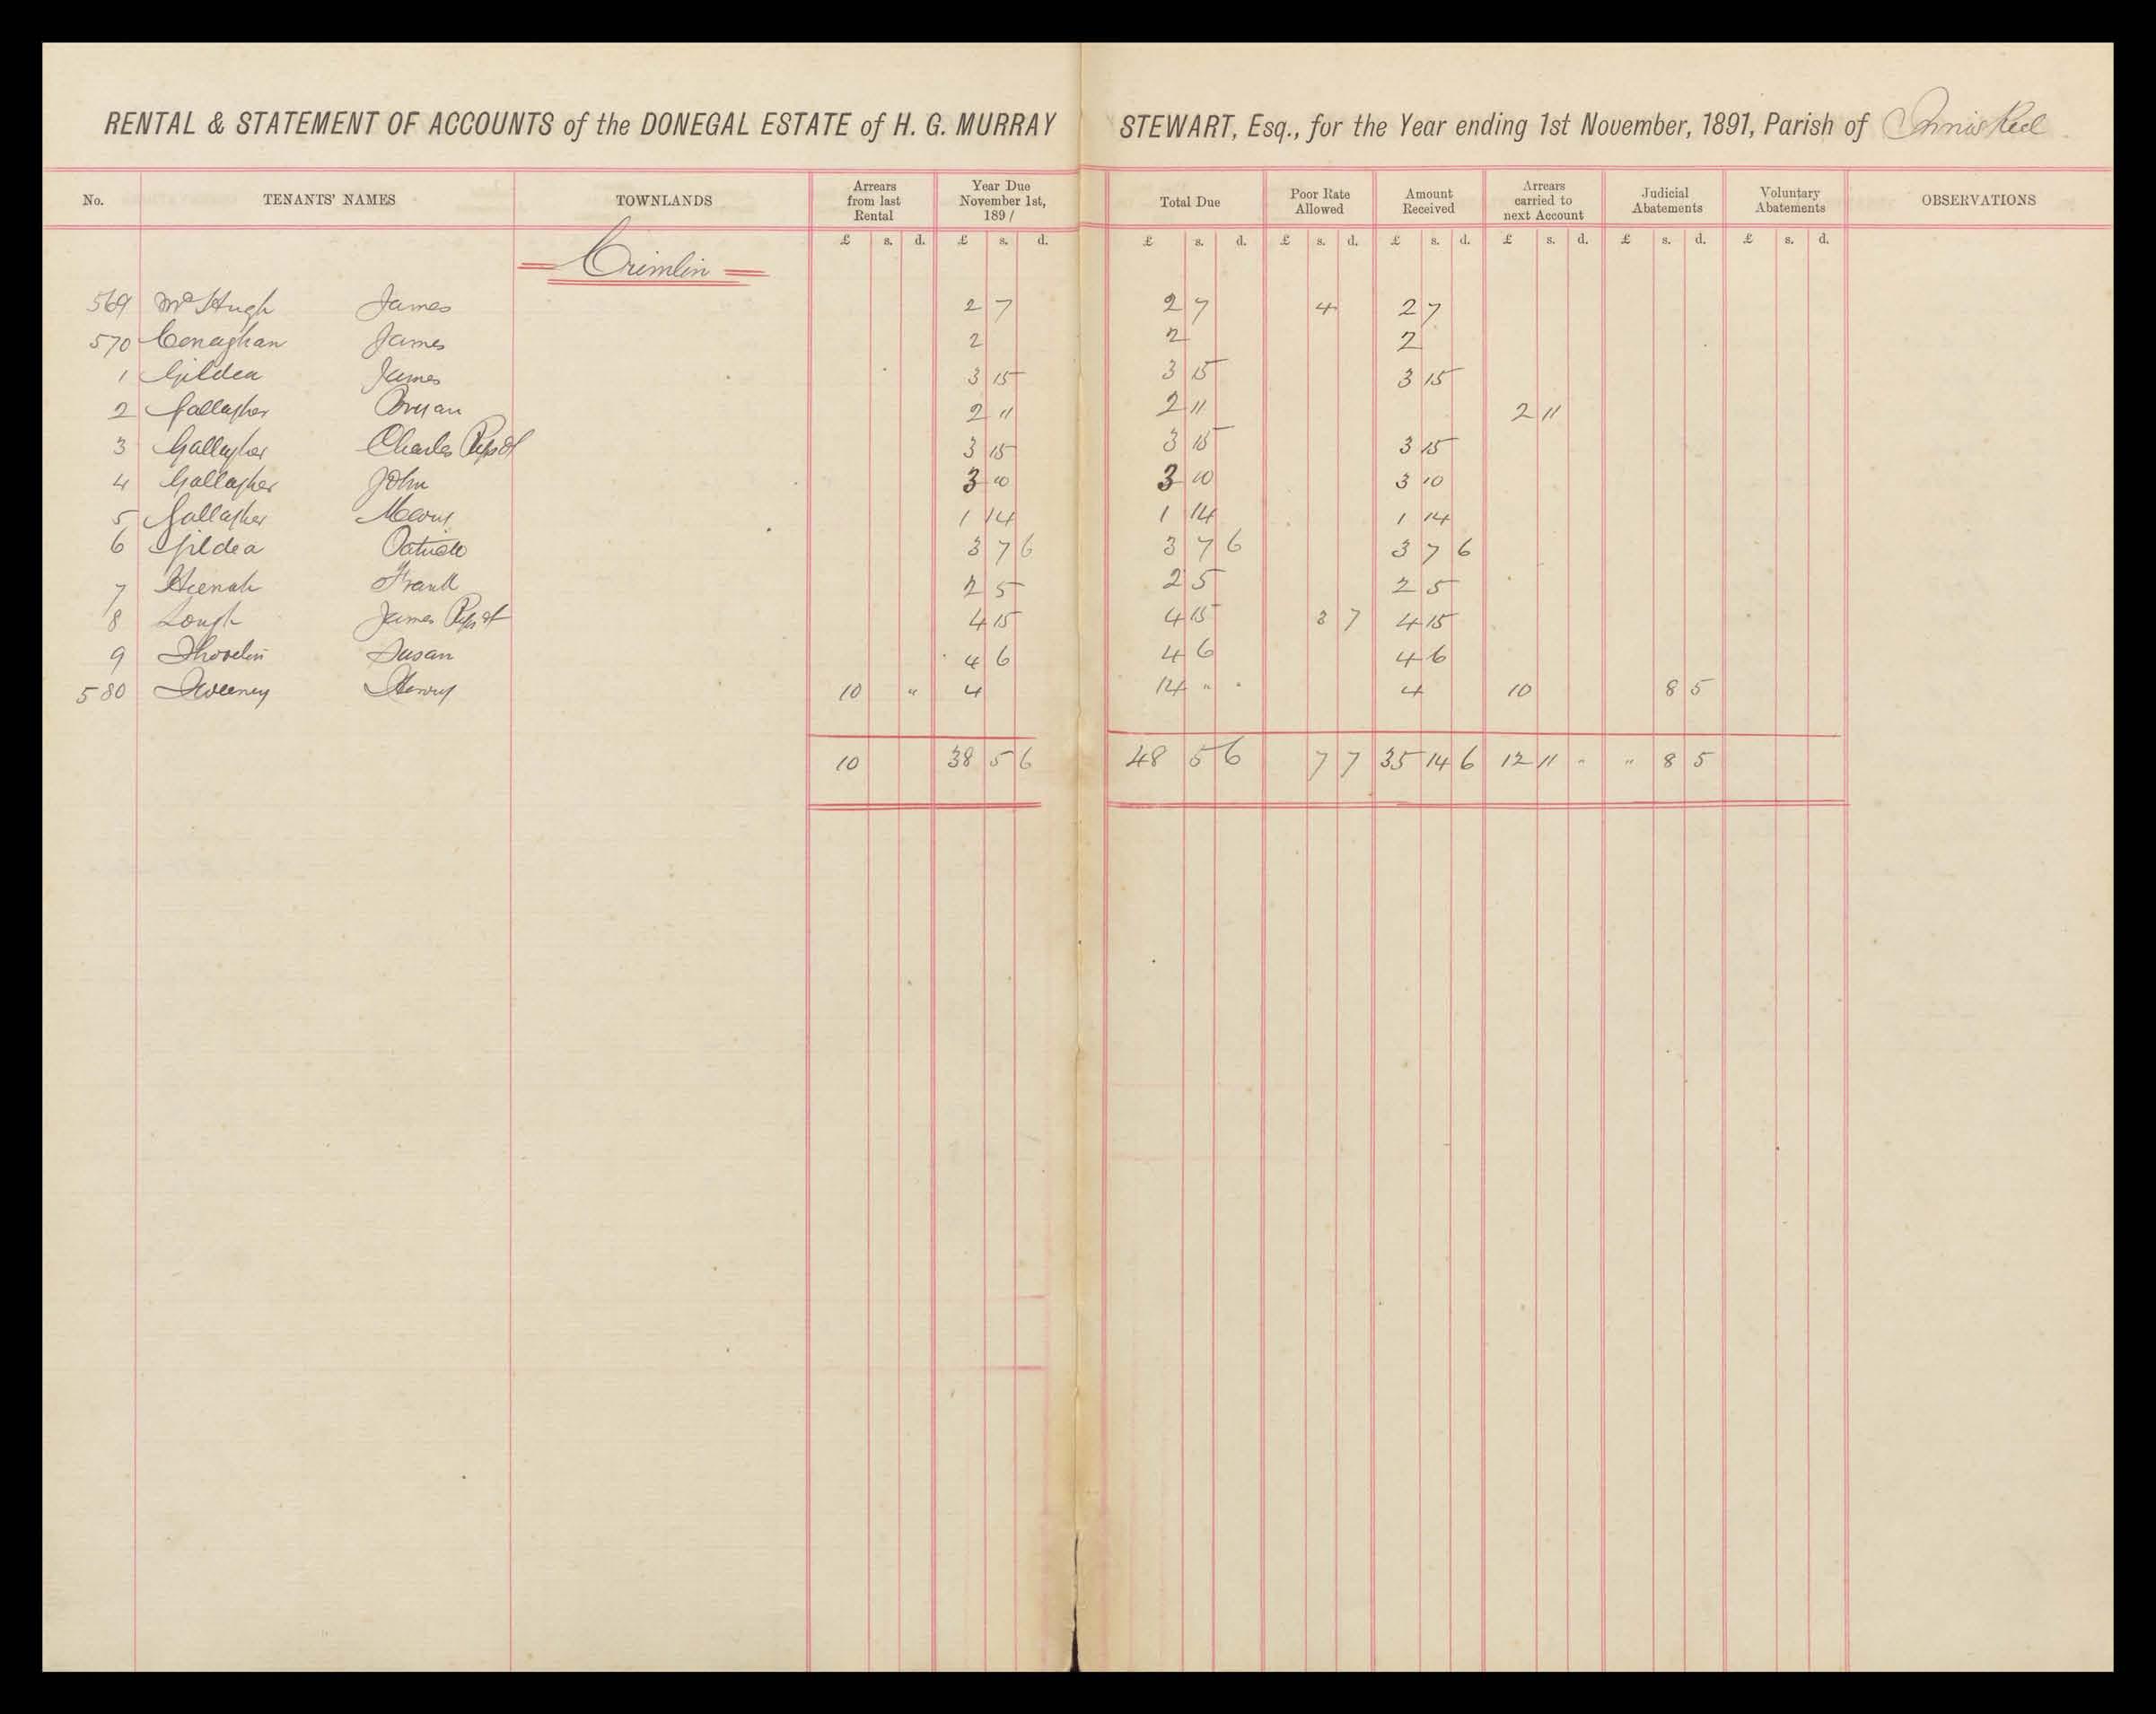 RENTAL & STATEMENT OF ACCOUNTS of the DONEGAL ESTATE of H. G. MURRAY STEWART, Esq., for the Year ending 1st November, 1891, Parish of Inniskeel
No. TENANTS' NAMES TOWNLANDS Arrears from last Rental Year Due November 1st, 1891 Total Due Poor Rate Allowed Amount Received Arrears carried to next Account Judicial Abatements Voluntary Abatements OBSERVATIONS
£ s. d. £ s. d. £ s. d. £ s. d. £ s. d. £ s. d. £ s. d. £ s. d.
Crimlin
569 McHugh James 2 7 2 7 4 2 7
570 Conaghan James 2 2 2
1 Gildea James 3 15 3 15 3 15
2 Gallagher Bryan 2 11 2 11 2 11
3 Gallagher Charles Reps of 3 15 3 15 3 15
4 Gallagher John 3 10 3 10 3 10
5 Gallagher Mary 1 14 1 14 1 14
6 Gildea Patrick 3 7 6 3 7 6 3 7 6
7 Frank 2 5 2 5 2 5
8 Lough James Reps of 4 15 4 15 3 7 4 15
9 Shovelin Susan 4 6 4 6 4 6
580 Sweeney Henry 10 " 4 14 " " 4 10 8 5
10 38 5 6 48 5 6 7 7 35 14 6 12 11 " " 8 5